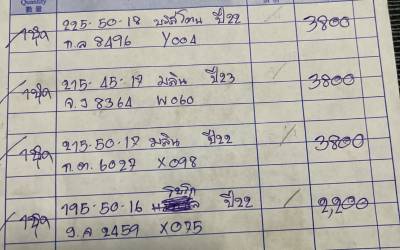 Quantity
数量
1ชุด 225-50-18 บริสโตน ปี22 / 3800
ก.ล 8496 Y004
1ชุด 215-45-17 มลิน ปี23 / 3800
จ.ว 8364 W060
1ชุด 215-50-17 มลิน ปี22 / 3800
ก.ต. 6027 X098
1ชุด 195-50-16 ปี22 / 2,200
ฐ.ล 2459 X025